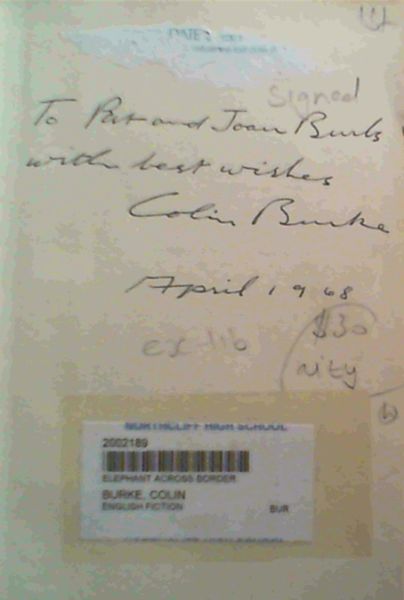 Signed
To Pat and Joan Burls
with best wishes
Colin Burke
April 1968
ex lib
$30
nity
NORTHCLIFF HIGH SCHOOL
2002189
ELEPHANT ACROSS BORDER
BURKE, COLIN
ENGLISH FICTION BUR